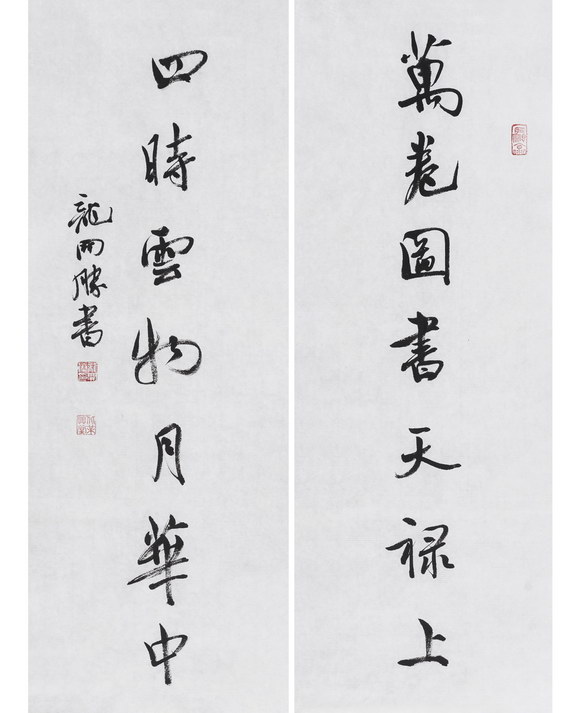 萬卷圖書天禄上
四時雲物月華中
龍開勝書